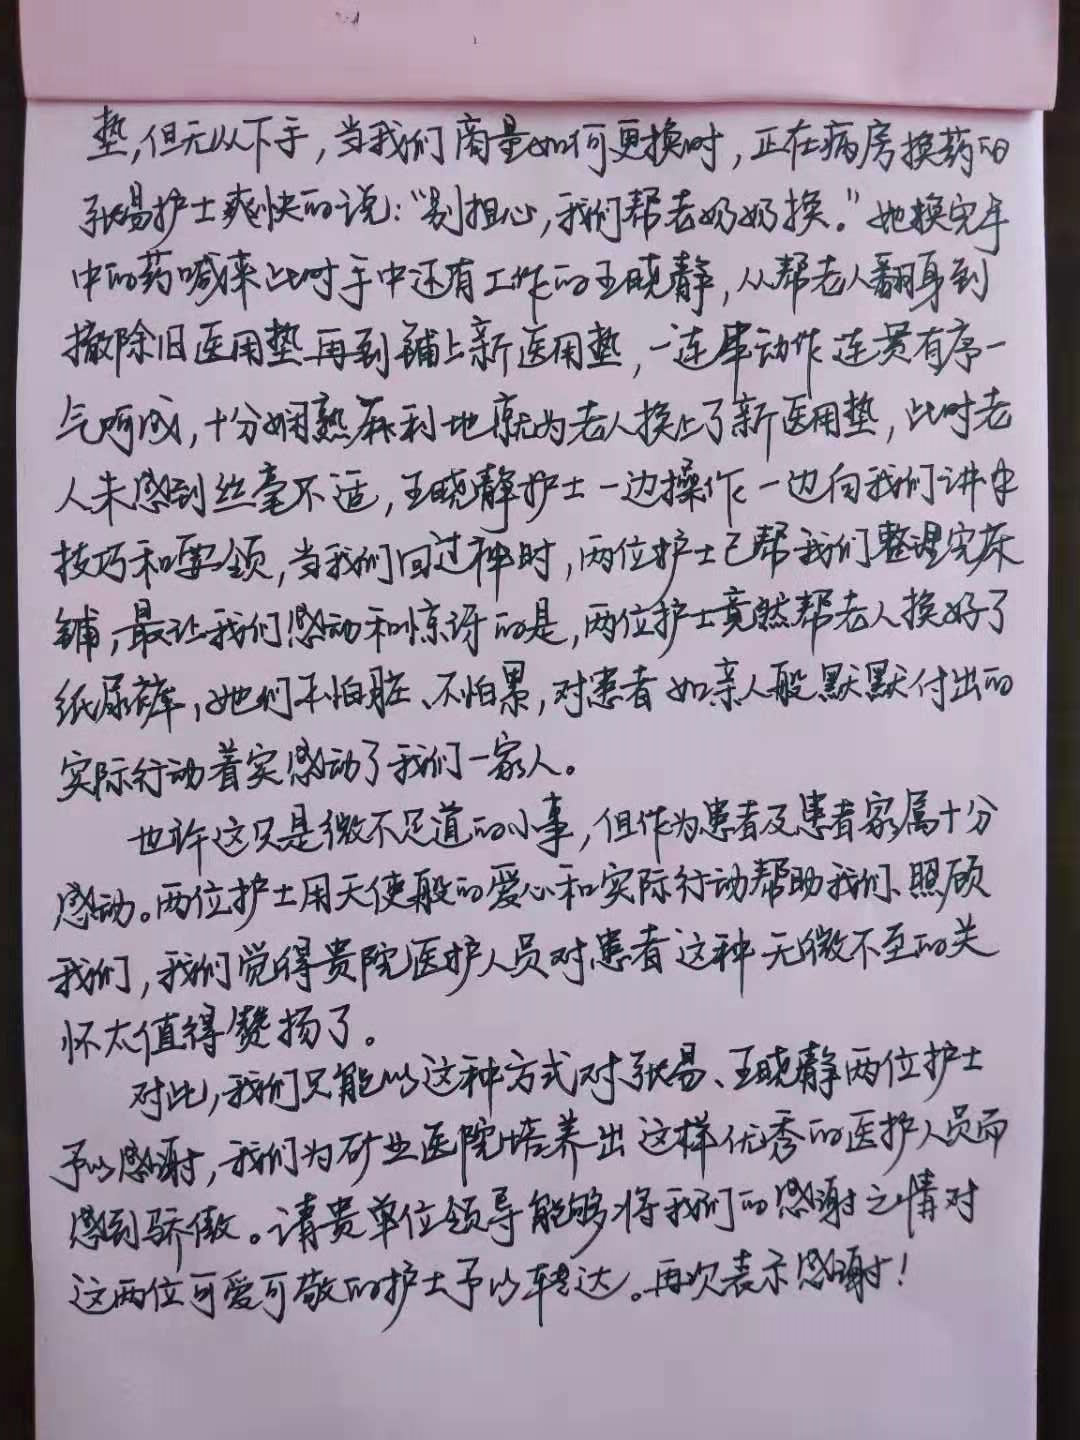 垫，但无从下手，当我们商量如何更换时，正在病房换药的
张易护士爽快的说：“别担心，我们帮老奶奶换。”她换完手
中的药喊来此时手中还有工作的王晓静，从帮老人翻身到
撤除旧医用垫再到铺上新医用垫，一连串动作连贯有序一
气呵成，十分娴熟麻利地就为老人换上了新医用垫，此时老
人未感到丝毫不适，王晓静护士一边操作一边向我们讲申
技巧和要领，当我们回过神时，两位护士已帮我们整理完床
铺，最让我们感动和惊讶的是，两位护士竟然帮老人换好了
纸尿裤，她们不怕脏、不怕累，对患者如亲人般默默付出的
实际行动着实感动了我们一家人。
也许这只是微不足道的小事，但作为患者及患者家属十分
感动。两位护士用天使般的爱心和实际行动帮助我们、照顾
我们，我们觉得贵院医护人员对患者这种无微不至的关
怀太值得赞扬了。
对此，我们只能以这种方式对张易、王晓静两位护士
予以感谢，我们为矿业医院培养出这样优秀的医护人员而
感到骄傲。请贵单位领导能够将我们的感谢之情对
这两位可爱可敬的护士予以转达。再次表示感谢！